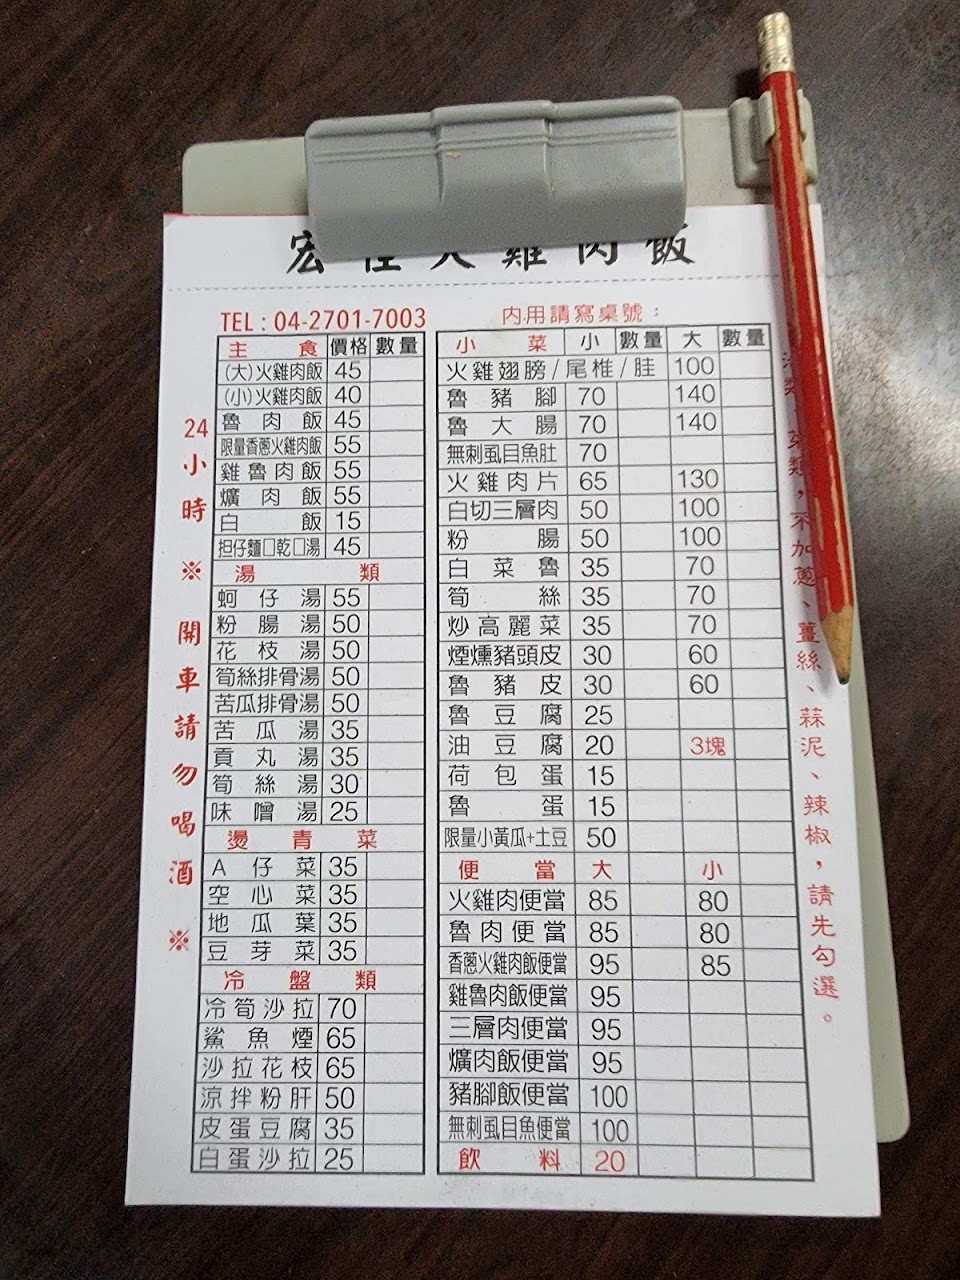 宏佳火雞肉飯
TEL : 04-2701-7003
內用請寫桌號：
主食 價格 數量
(大)火雞肉飯 45
(小)火雞肉飯 40
魯肉飯 45
限量香蔥火雞肉飯 55
雞魯肉飯 55
爌肉飯 55
白飯 15
担仔麵□乾□湯 45
湯類
蚵仔湯 55
粉腸湯 50
花枝湯 50
筍絲排骨湯 50
苦瓜排骨湯 50
苦瓜湯 35
貢丸湯 35
筍絲湯 30
味噌湯 25
燙青菜
A仔菜 35
空心菜 35
地瓜葉 35
豆芽菜 35
冷盤類
冷筍沙拉 70
鯊魚煙 65
沙拉花枝 65
涼拌粉肝 50
皮蛋豆腐 35
白蛋沙拉 25
小菜 小 數量 大 數量
火雞翅膀/尾椎/胿 100
魯豬腳 70 140
魯大腸 70 140
無刺虱目魚肚 70
火雞肉片 65 130
白切三層肉 50 100
粉腸 50 100
白菜魯 35 70
筍絲 35 70
炒高麗菜 35 70
煙燻豬頭皮 30 60
魯豬皮 30 60
魯豆腐 25
油豆腐 20 3塊
荷包蛋 15
魯蛋 15
限量小黃瓜+土豆 50
便當 大 小
火雞肉便當 85 80
魯肉便當 85 80
香蔥火雞肉飯便當 95 85
雞魯肉飯便當 95
三層肉便當 95
爌肉飯便當 95
豬腳飯便當 100
無刺虱目魚便當 100
飲料 20
24小時 ※ 開車請勿喝酒 ※
類，不加蔥、薑絲、蒜泥、辣椒，請先勾選。